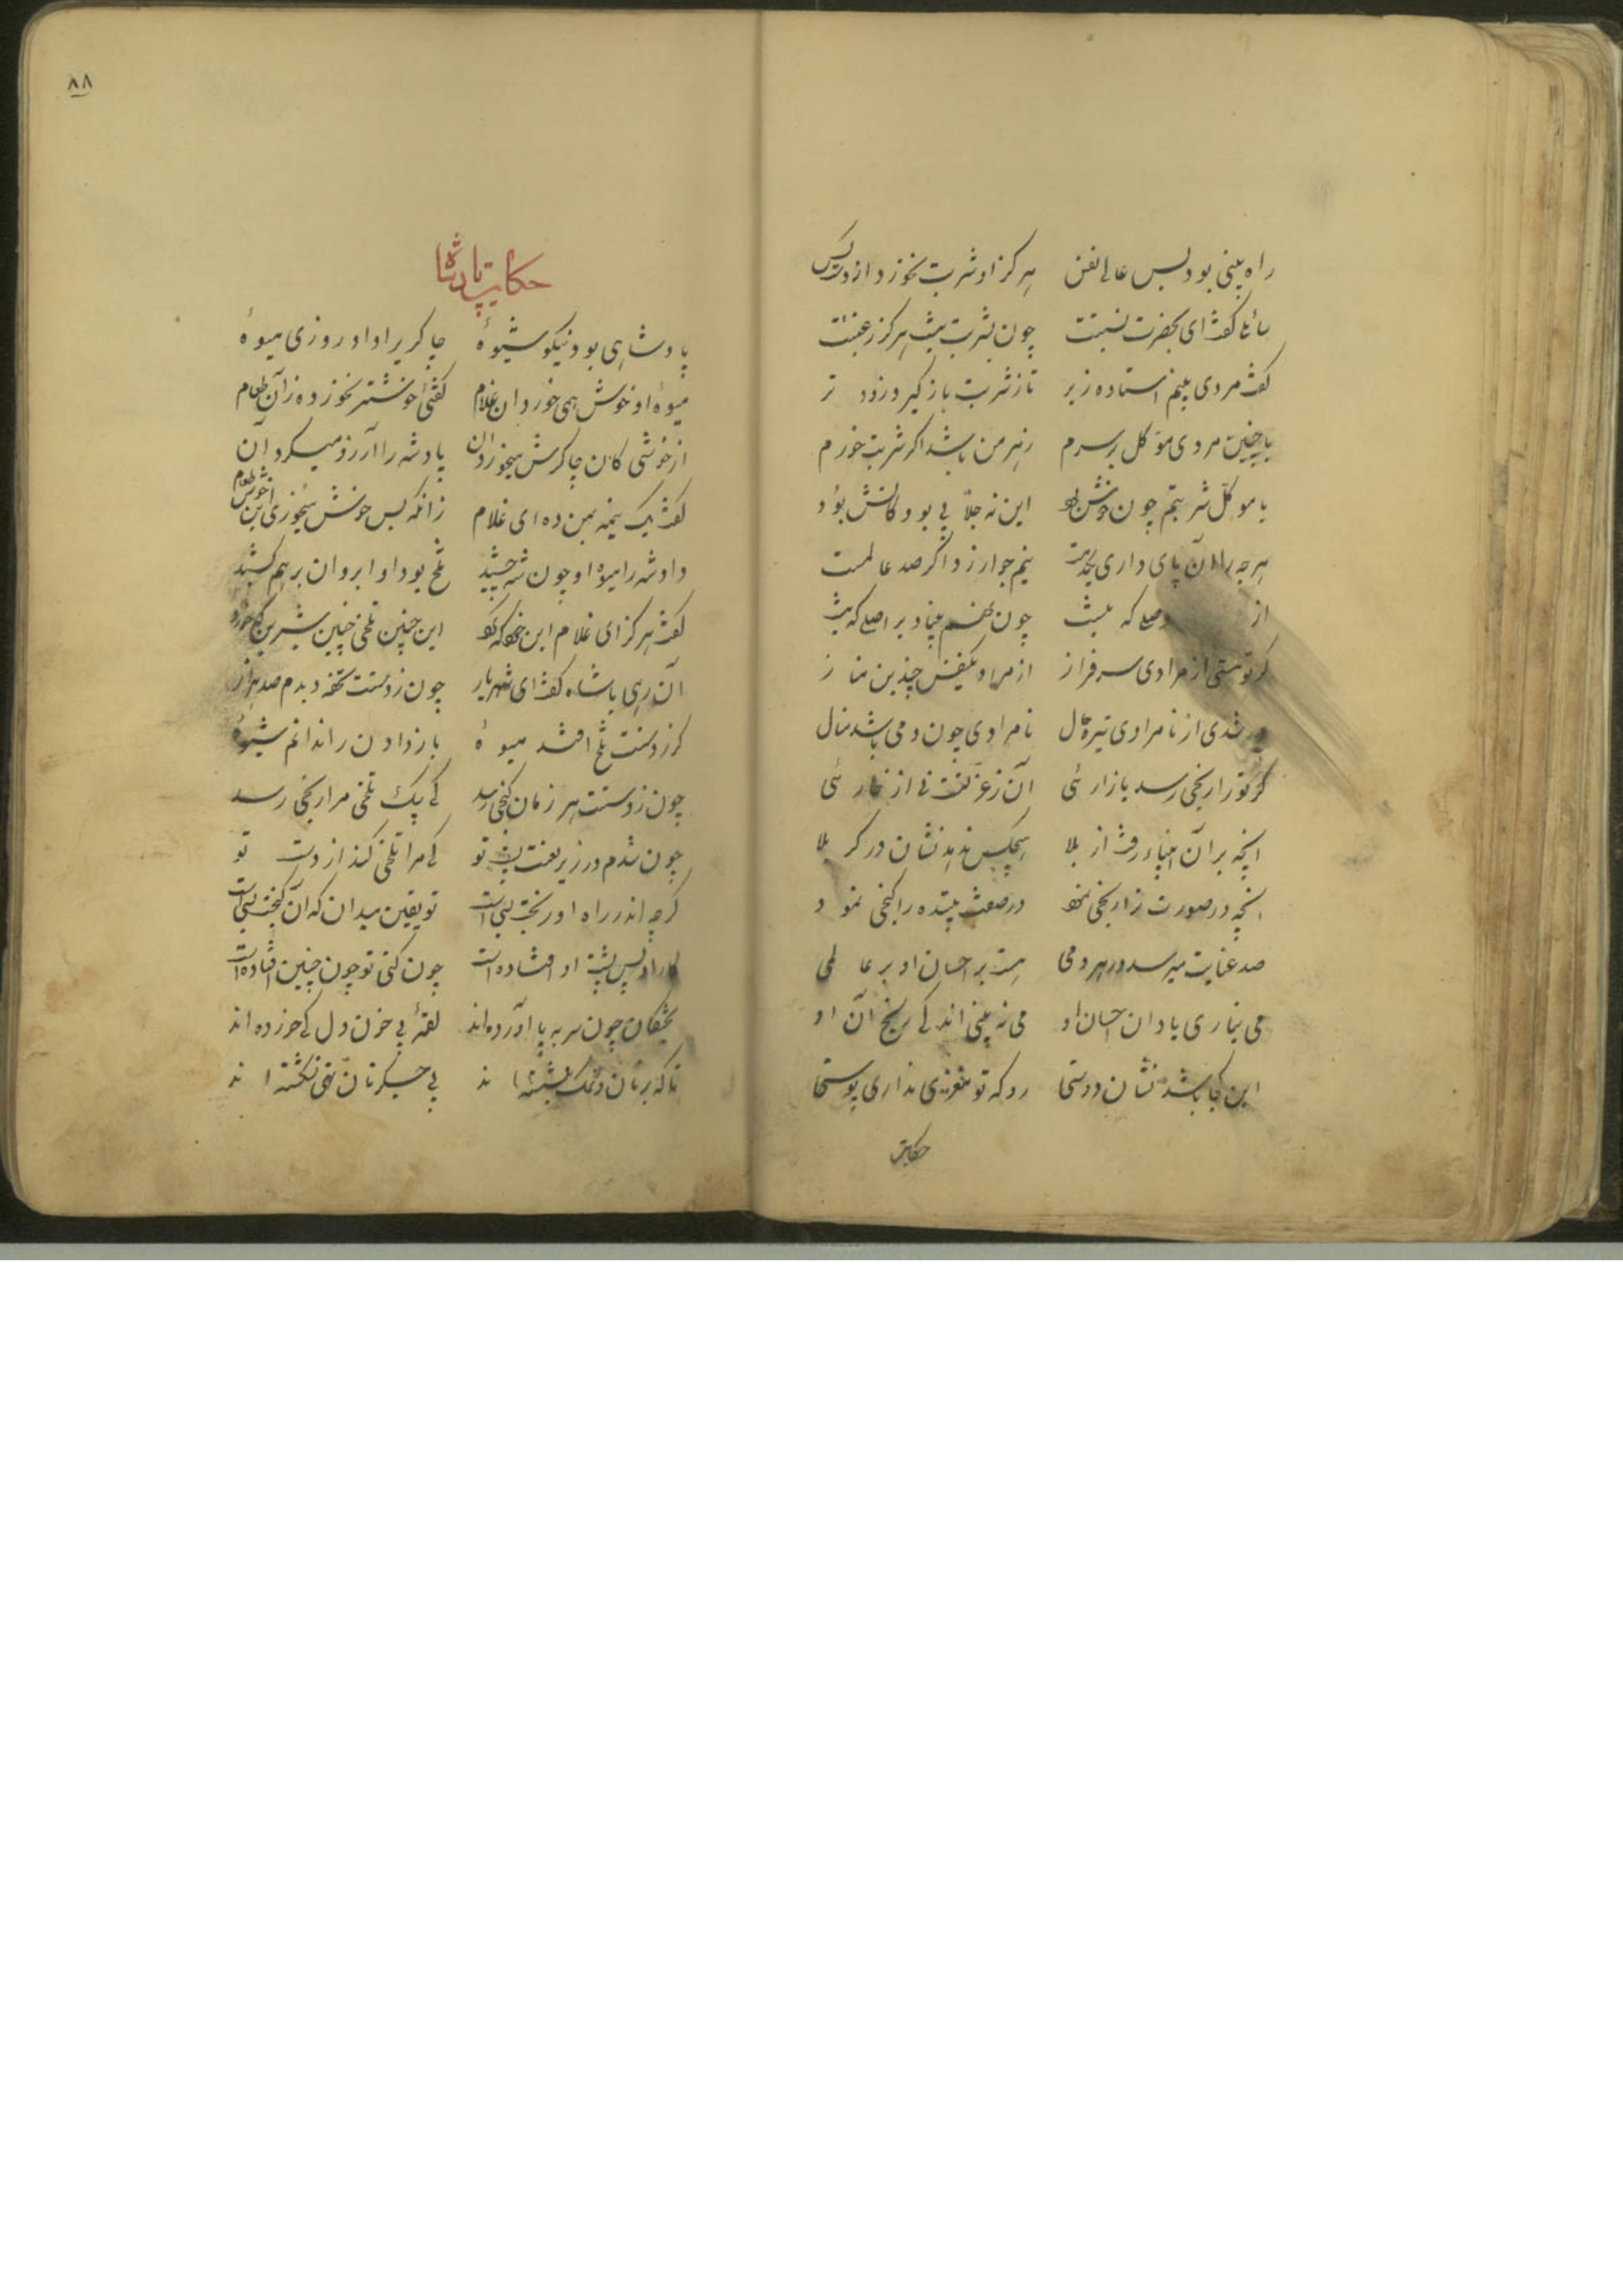 راه بینی بود بس عالی نفس هرگز او شربت نخورد از دست کس
سائلی گفت ای بحضرت نسبتت چون بشربت نیست هرگز رغبتت
گفت مردی بینم استاده زبر تا ز شربت باز گیرد زود تر
با چنین مردی موکل بر سرم زهر من باشد اگر شربت خورم
با موکل شربتم چون خوش بود این نه جلابی بود کاتش بود
هرچه را آن پای داری یکدمست نیم جو ارزد اگر صد عالمست
از وصلی که نیست چون نهم بنیاد بر اصلی که نیست
گر تو هستی از مرادی سرفراز از مراد یکنفس چندین مناز
ور شدی از نامرادی تیره حال نامرادی چون دمی باشد منال
گر تو را رنجی رسد یا زارئی آن ز عز تست نی از خارئی
انچه بر آن انبیاء رفت از بلا هیچکس ندهد نشان در کربلا
انچه در صورت ترا رنجی نمود در صفت بیننده را گنجی نمود
صد عنایت میرسد در هر دمی هست بر احسان او بر عالمی
می نیاری یاد آن احسان او می نه بینی اندکی رنج آن او
این کجا باشد نشان دوستی رو که تو مغزی نداری پوستی
حکایت
۸۸
حکایت پادشاه
پادشاهی بود نیکو شیوهٔ چاکری را داد روزی میوهٔ
میوهٔ او خوش همی خورد ان غلام گفتی خوشتر نخورده زآن طعام
از خوشی کان چاکرش میخورد ان پادشه را آرزو میکرد آن
گفت یک نیمه بمن ده ای غلام زانکه بس خوش میخوری این خوش طعام
داد شه را میوه او چون شه چشید تلخ بود او ابروان برهم کشید
گفت هرگز ای غلام این خود که کرد این چنین تلخی چنین شیرین که خورد
آن رهی با شاه گفت ای شهریار چون ز دستت تحفه دیدم صد هزار
گر ز دستت تلخ افتد میوهٔ باز دادن را ندانم شیوهٔ
چون ز دستت هر زمان گنجی رسد کی بیک تلخی مرا رنجی رسد
چون شدم در زیر نعمت پست تو کی مرا تلخی کند از دست تو
گرچه اندر راه او رنجت بسی است تو یقین میدان که آن گنجت بسی است
کار او بس پشت او افتاده است چون کنی تو چون چنین افتاده است
پختگان چون سر به پا آورده‌اند لقمهٔ بی خون دل کی خورده‌اند
تا که بر نان و نمک بنشسته‌اند بی جگر نان تهی نشکسته‌اند